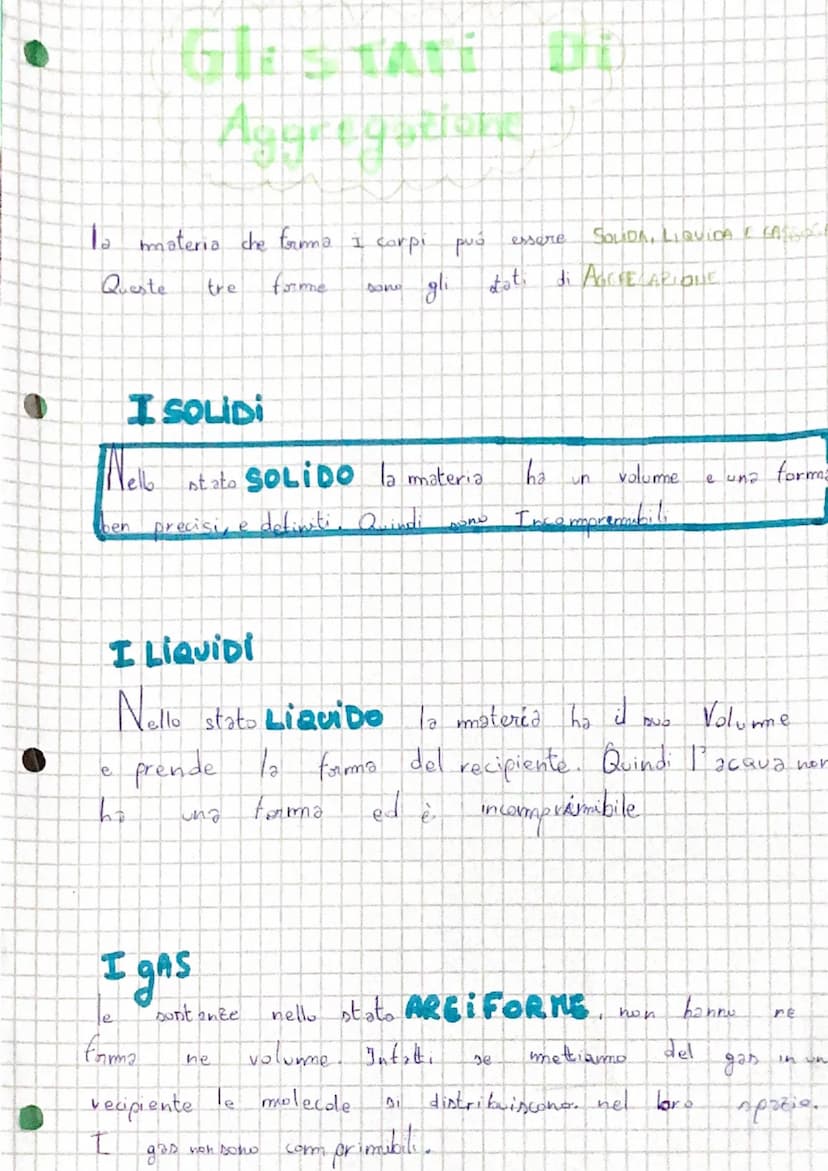 Gli STATi Di
Aggregazione
la materia che forma I corpi può essere SOLIDA, LIQUIDA E
Queste tre forme sono gli stati di
I SOLiDi
Nello stato SOLiDO la materia ha un volume e una forma
ben precisi, e definiti. Quindi sono
I LiQUiDi
Nello stato LiQUiDO la materia ha il suo Volume
e prende la forma del recipiente. Quindi l'acqua non
ha una forma ed è incomprimibile
I gAS
le sostanze nello stato AREiFORME, non hanno ne
forma ne volume. Infatti se mettiamo del gas in un
recipiente le molecole si distribuiscono. nel loro spazio.
I gas non sono comprimibili.